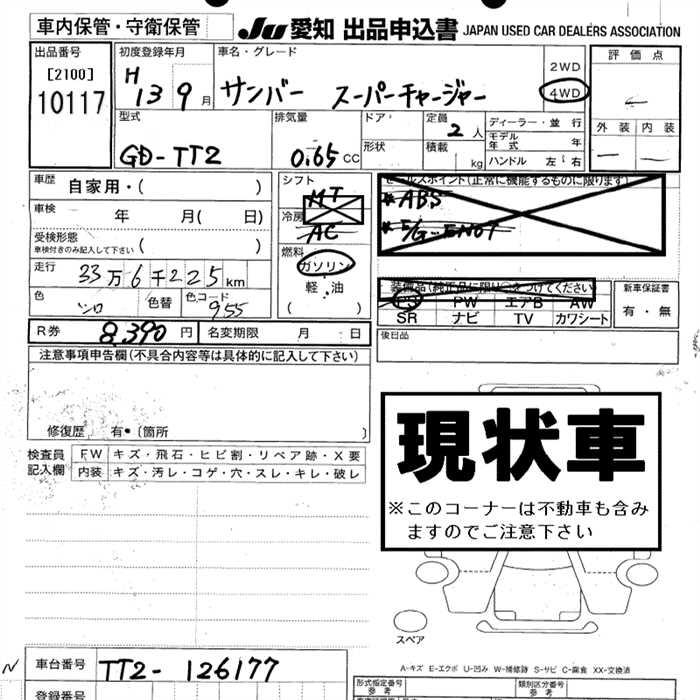 車内保管・守衛保管
JU 愛知 出品申込書 JAPAN USED CAR DEALERS ASSOCIATION
出品番号
[2100]
10117
初度登録年月
H 13 9月
車名・グレード
サンバー スーパーチャージャー
2WD
4WD
評価点
外装 内装
型式
GD-TT2
排気量
0.65 CC
ドア・形状
定員 2人
積載 kg
ディーラー・並行
モデル年式 年
ハンドル 左・右
車歴 自家用・( )
車検 年 月( 日)
受検形態
車検付きのみ記入して下さい ( )
走行 33万6千225km
色 シロ 色替 色コード 955
シフト MT
冷房 AC
燃料
ガソリン
軽油
( )
セールスポイント(正常に機能するものに限ります)
*ABS
装備品(純正品に限り○をつけてください)
PS PW エアB AW
SR ナビ TV カワシート
新車保証書
有・無
R券 8,390円 名変期限 月 日
後日品
注意事項申告欄(不具合内容等は具体的に記入して下さい)
修復歴 有・(箇所 )
検査員記入欄
FW キズ・飛石・ヒビ割・リペア跡・X要
内装 キズ・汚レ・コゲ・穴・スレ・キレ・破レ
現状車
※このコーナーは不動車も含み
ますのでご注意下さい
スペア
A-キズ E-エクボ U-凹み W-補修跡 S-サビ C-腐食 XX-交換済
N 車台番号 TT2-126177
登録番号
形式指定番号 参考
類別区分番号 参考